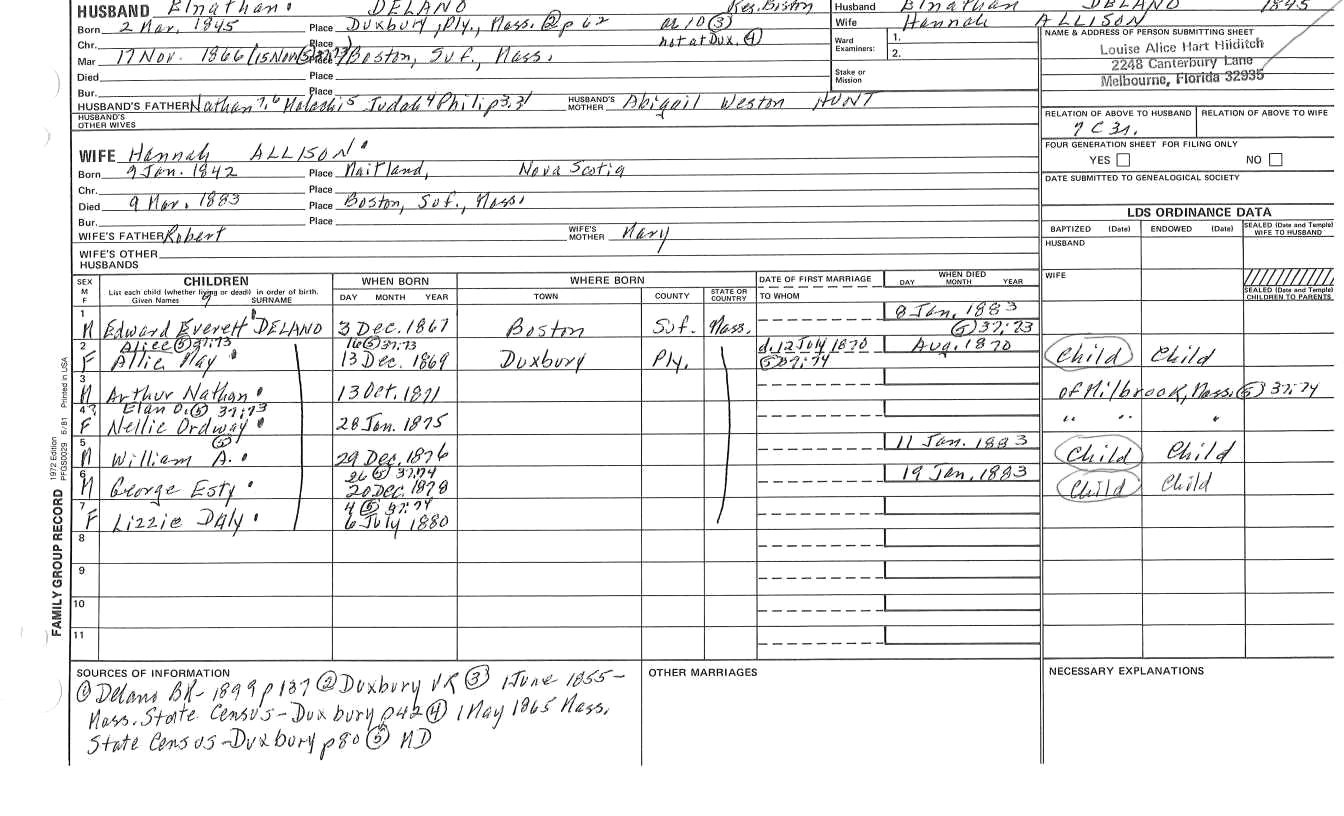 HUSBAND Elnathan DELANO Res. Boston
Born 2 Mar. 1845 Place Duxbury, Ply., Mass. ② p 62 ae 10 ③
Chr. Place not at Dux. ④
Mar 17 Nov. 1866/15 Nov ⑤ 37:73/ Place Boston, Suf., Mass.
Died Place
Bur. Place
HUSBAND'S FATHER Nathan 7,6 Malachi 5 Judah 4 Philip 3,2,1 HUSBAND'S MOTHER Abigail Weston HUNT
HUSBAND'S OTHER WIVES
WIFE Hannah ALLISON
Born 9 Jan. 1842 Place Maitland, Nova Scotia
Chr. Place
Died 9 Mar. 1883 Place Boston, Suf., Mass.
Bur. Place
WIFE'S FATHER Robert WIFE'S MOTHER Mary
WIFE'S OTHER HUSBANDS
Husband Elnathan DELANO 1845
Wife Hannah ALLISON
Ward Examiners: 1.
2.
Stake or Mission
NAME & ADDRESS OF PERSON SUBMITTING SHEET
Louise Alice Hart Hilditch
2248 Canterbury Lane
Melbourne, Florida 32935
RELATION OF ABOVE TO HUSBAND RELATION OF ABOVE TO WIFE
7 C 3r.
FOUR GENERATION SHEET FOR FILING ONLY
YES NO
DATE SUBMITTED TO GENEALOGICAL SOCIETY
LDS ORDINANCE DATA
BAPTIZED (Date) ENDOWED (Date) SEALED (Date and Temple) WIFE TO HUSBAND
HUSBAND
WIFE
SEALED (Date and Temple) CHILDREN TO PARENTS
SEX M F CHILDREN WHEN BORN WHERE BORN DATE OF FIRST MARRIAGE WHEN DIED
List each child (whether living or dead) in order of birth.
Given Names 9 SURNAME DAY MONTH YEAR TOWN COUNTY STATE OR COUNTRY TO WHOM DAY MONTH YEAR
1 M Edward Everett DELANO 3 Dec. 1867 Boston Suf. Mass. 8 Jan. 1883
⑤ 37:73
Alice ⑤ 37:73 16 ⑤ 37:73 d. 12 July 1870
2 F Allie May 13 Dec. 1869 Duxbury Ply. ⑤ 37:74 Aug. 1870 Child Child
3 M Arthur Nathan 13 Oct. 1871 of Milbrook, Mass. ⑤ 37:74
Elan O. ⑤ 37:73
4 F Nellie Ordway 28 Jan. 1875 " " "
⑤
5 M William A. 29 Dec. 1876 11 Jan. 1883 Child Child
26 ⑤ 37:74
6 M George Esty 20 Dec. 1878 19 Jan. 1883 Child Child
4 ⑤ 37:74
7 F Lizzie Daly 6 July 1880
8
9
10
11
FAMILY GROUP RECORD 1972 Edition PFGS0029 6/81 Printed in USA
SOURCES OF INFORMATION
① Delano BK-1899 p 137 ② Duxbury VR ③ 1 June 1855-
Mass. State Census-Duxbury p42 ④ 1 May 1865 Mass.
State Census-Duxbury p80 ⑤ MD
OTHER MARRIAGES
NECESSARY EXPLANATIONS